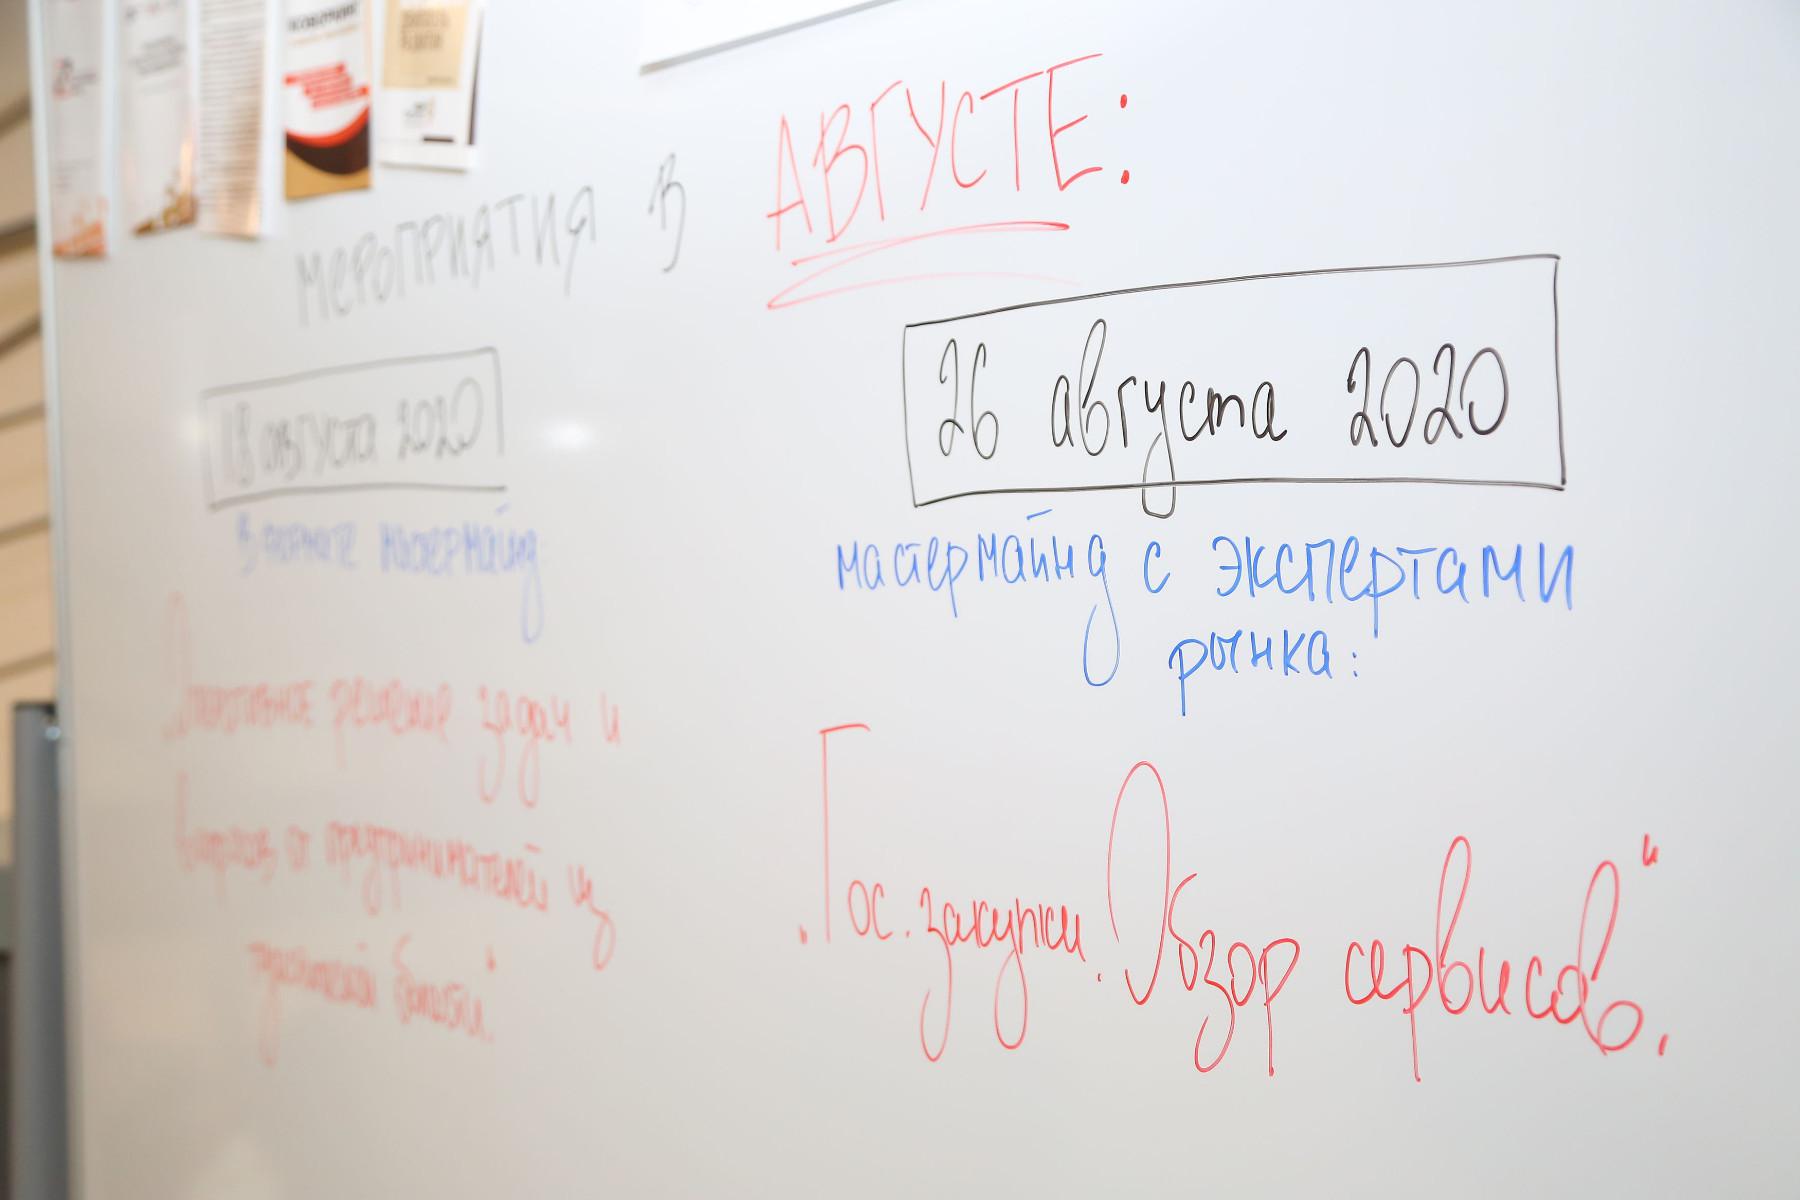 МЕРОПРИЯТИЯ В АВГУСТЕ:
18 августа 2020
В формате мастермайнд
Оперативное решение задач и
вопросов от предпринимателей из
26 августа 2020
мастермайнд с экспертами
рынка:
„Гос. закупки. Обзор сервисов".